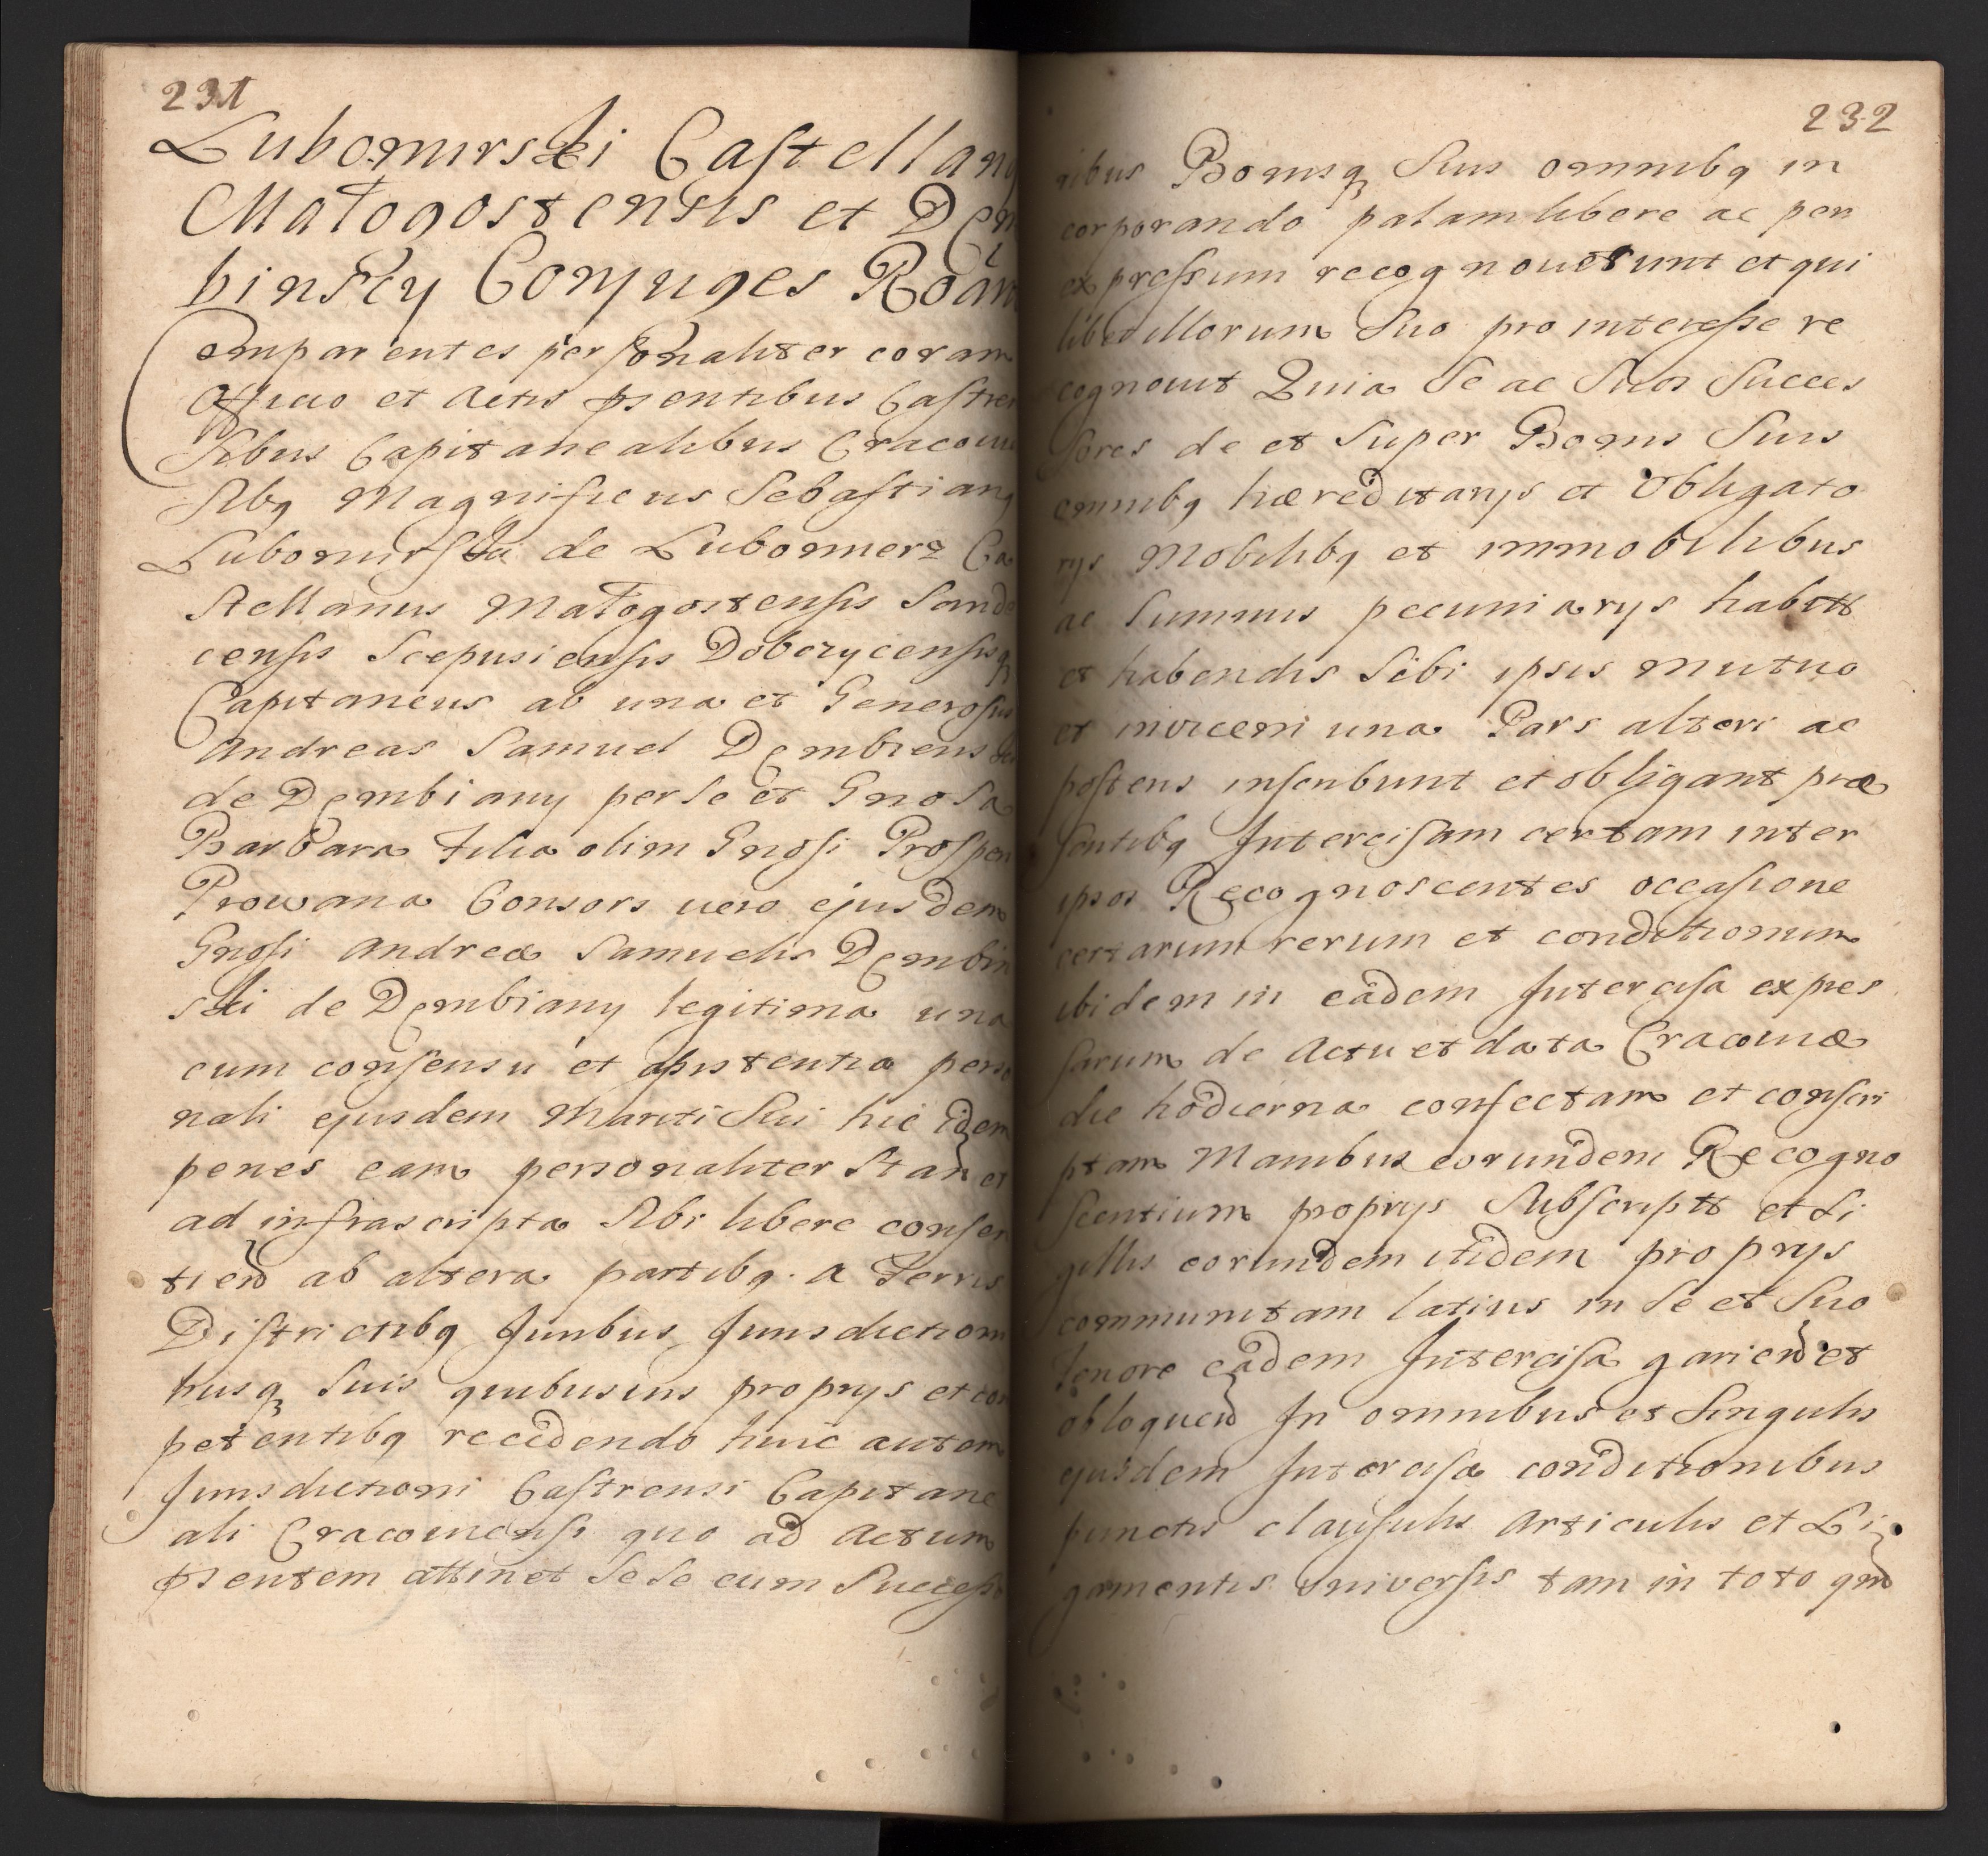 231
Lubomirski Castellanq
Małogostensis et Dęm
binscy Conjuges Roãn
Comparentes personaliter coram
Officio et Actis pñtibus Castren
sibus Capitanealibus Cracovien
sibq Magnificus Sebastianq
Lubomirski de Lubomierz Ca
stellanus Małogostensis Sande
censis Scepusiensis Dobczycensisq
Capitaneus ab una et Generosus
Andreas Samuel Dęmbiens ki
de Dęmbiany per se et Gnosa
Barbara Filia olim Gnosi Prosperi
Prowana Consors vero ejusdem
Gnosi Andreæ Samuelis Dęmbin
ski de Dęmbiany legitima una
cum consensu et assistentia perso
nali ejusdem Mariti sui hic idem
penes eam personaliter stan et
ad infrascripta sibi libere consen
tien ab altera partibq. a Terris
Districtibq Juribus Jurisdictioni
busq suis quibusuis proprijs et com
petentibq recedendo huic autem
Jurisdictioni Castrensi Capitane
ali Cracoviensi quo ad Actum
pñtem attinet se se cum Successo
232
ribus Bonisq suis omnibq in
corporando palam libere ac per
expressum recognouerunt et qui
libet illorum suo pro interesse re
cognouit Quia se ac suos Succes
sores de et super Bonis suis
omnibq hæreditarijs et obligato
rijs Mobilibq et immobilibus
ac summis pecuniarijs habitt
et habendis sibi ipsis mutuo
et invicem una Pars alteri ac
posteris inscribunt et obligant præ
sentibq Intercisam certam inter
ipsos Recognoscentes occasione
certarum rerum et conditionum
ibidem in eadem Intercisa expres
sarum de Actu et data Cracoviæ
die hodierna confectam et conscri
ptam Manibus eorundem Recogno
scentium proprijs subscriptt et Si
gillis eorundem itidem proprijs
communitam latius in se et suo
tenore eadem Intercisa garien et
obloquen In omnibus et singulis
ejusdem Intercisæ conditionibus
punctis clausulis Articulis et Li
gamentis universis tam in toto qm